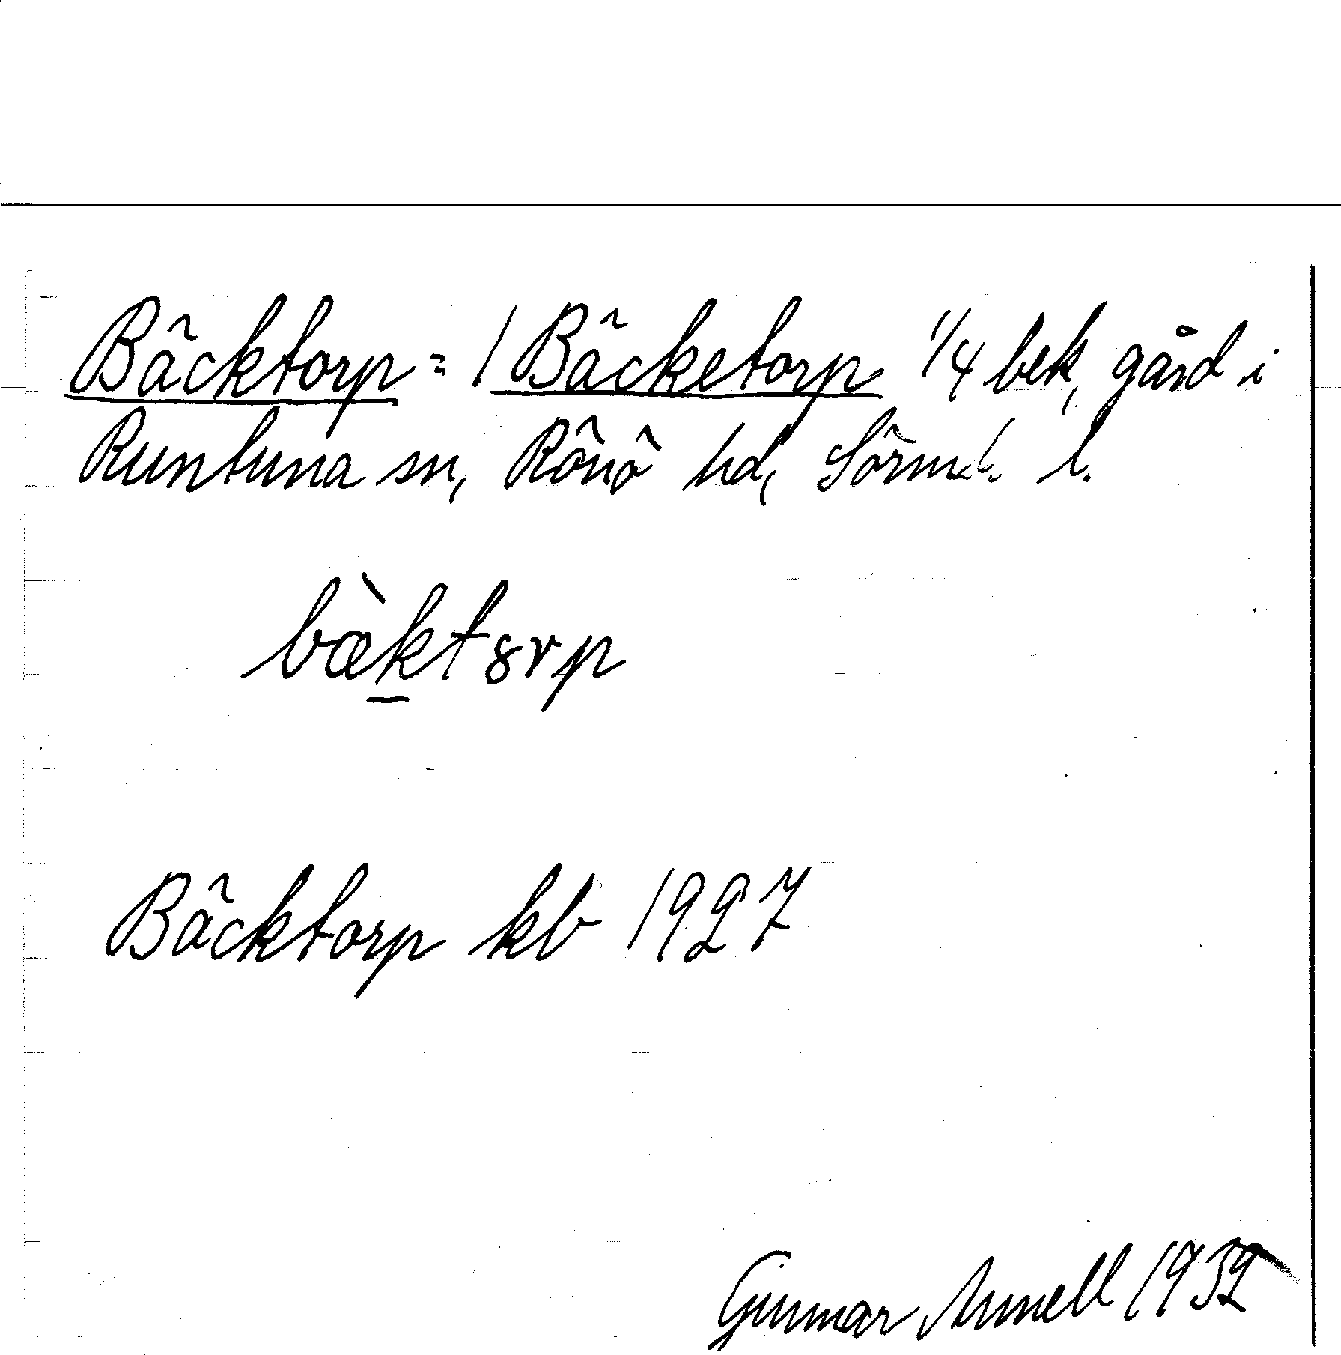 Bäcktorp = / Bäcketorp 1/4 bek, gård i
Runtuna sn, Rönö hd, Sörml. l.
bæ̀k̠tȣrp
Bäcktorp kb 1927
Gunnar Annell 1932